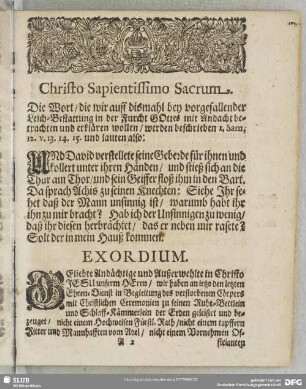 Christo Sapientissimo Sacrum.
Die Wort/ die wir auff dismahl bey vorgefallender
Leich-Bestattung in der Furcht GOttes mit Andacht be-
trachten und erklären wollen/ werden beschrieben 1. Sam.
12. v. 13. 14. 15. und lauten also:
UNd David verstellete seine Geberde für ihnen und
kollert unter ihren Händen/ und stieß sich an die
Thür am Thor/ und sein Geiffer floß ihm in den Bart.
Da sprach Achis zu seinen Knechten: Siehe Ihr se-
het daß der Mann unsinnig ist/ warumb habt ihr
ihn zu mir bracht? Hab ich der Unsinnigen zu wenig/
daß ihr diesen herbrächtet/ das er neben mir rasete?
Solt der in mein Hauß kommen.
EXORDIUM.
GEliebte Andächtige und Außerwehlte in Christo
JESU unserm HErrn/ wir haben an jetzo den letzten
Ehren-Dienst in Begleitung des verstorbenen Cörpers
mit Christlichen Ceremonien zu seinen Ruhe-Bettlein
und Schlaff-Kämmerlein der Erden geleistet und be-
zeuget/ nicht einem Hochweisen Fürstl. Rath/ nicht einem tapffern
Ritter und Mannhafften vom Adel/ nicht einem Vornehmen Of-
A 2
SLUB
DRESDEN